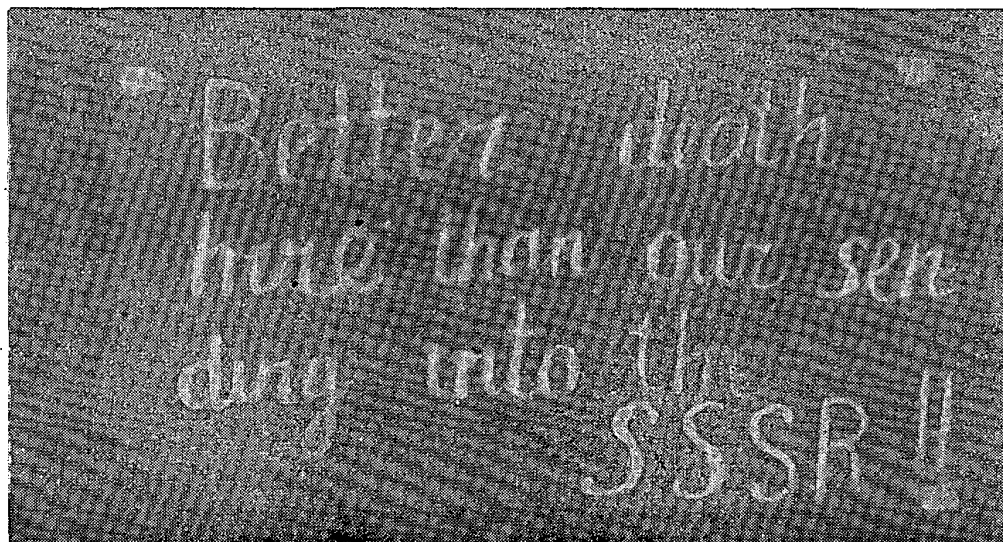 Better death
here than our sen
ding into the
SSSR!!